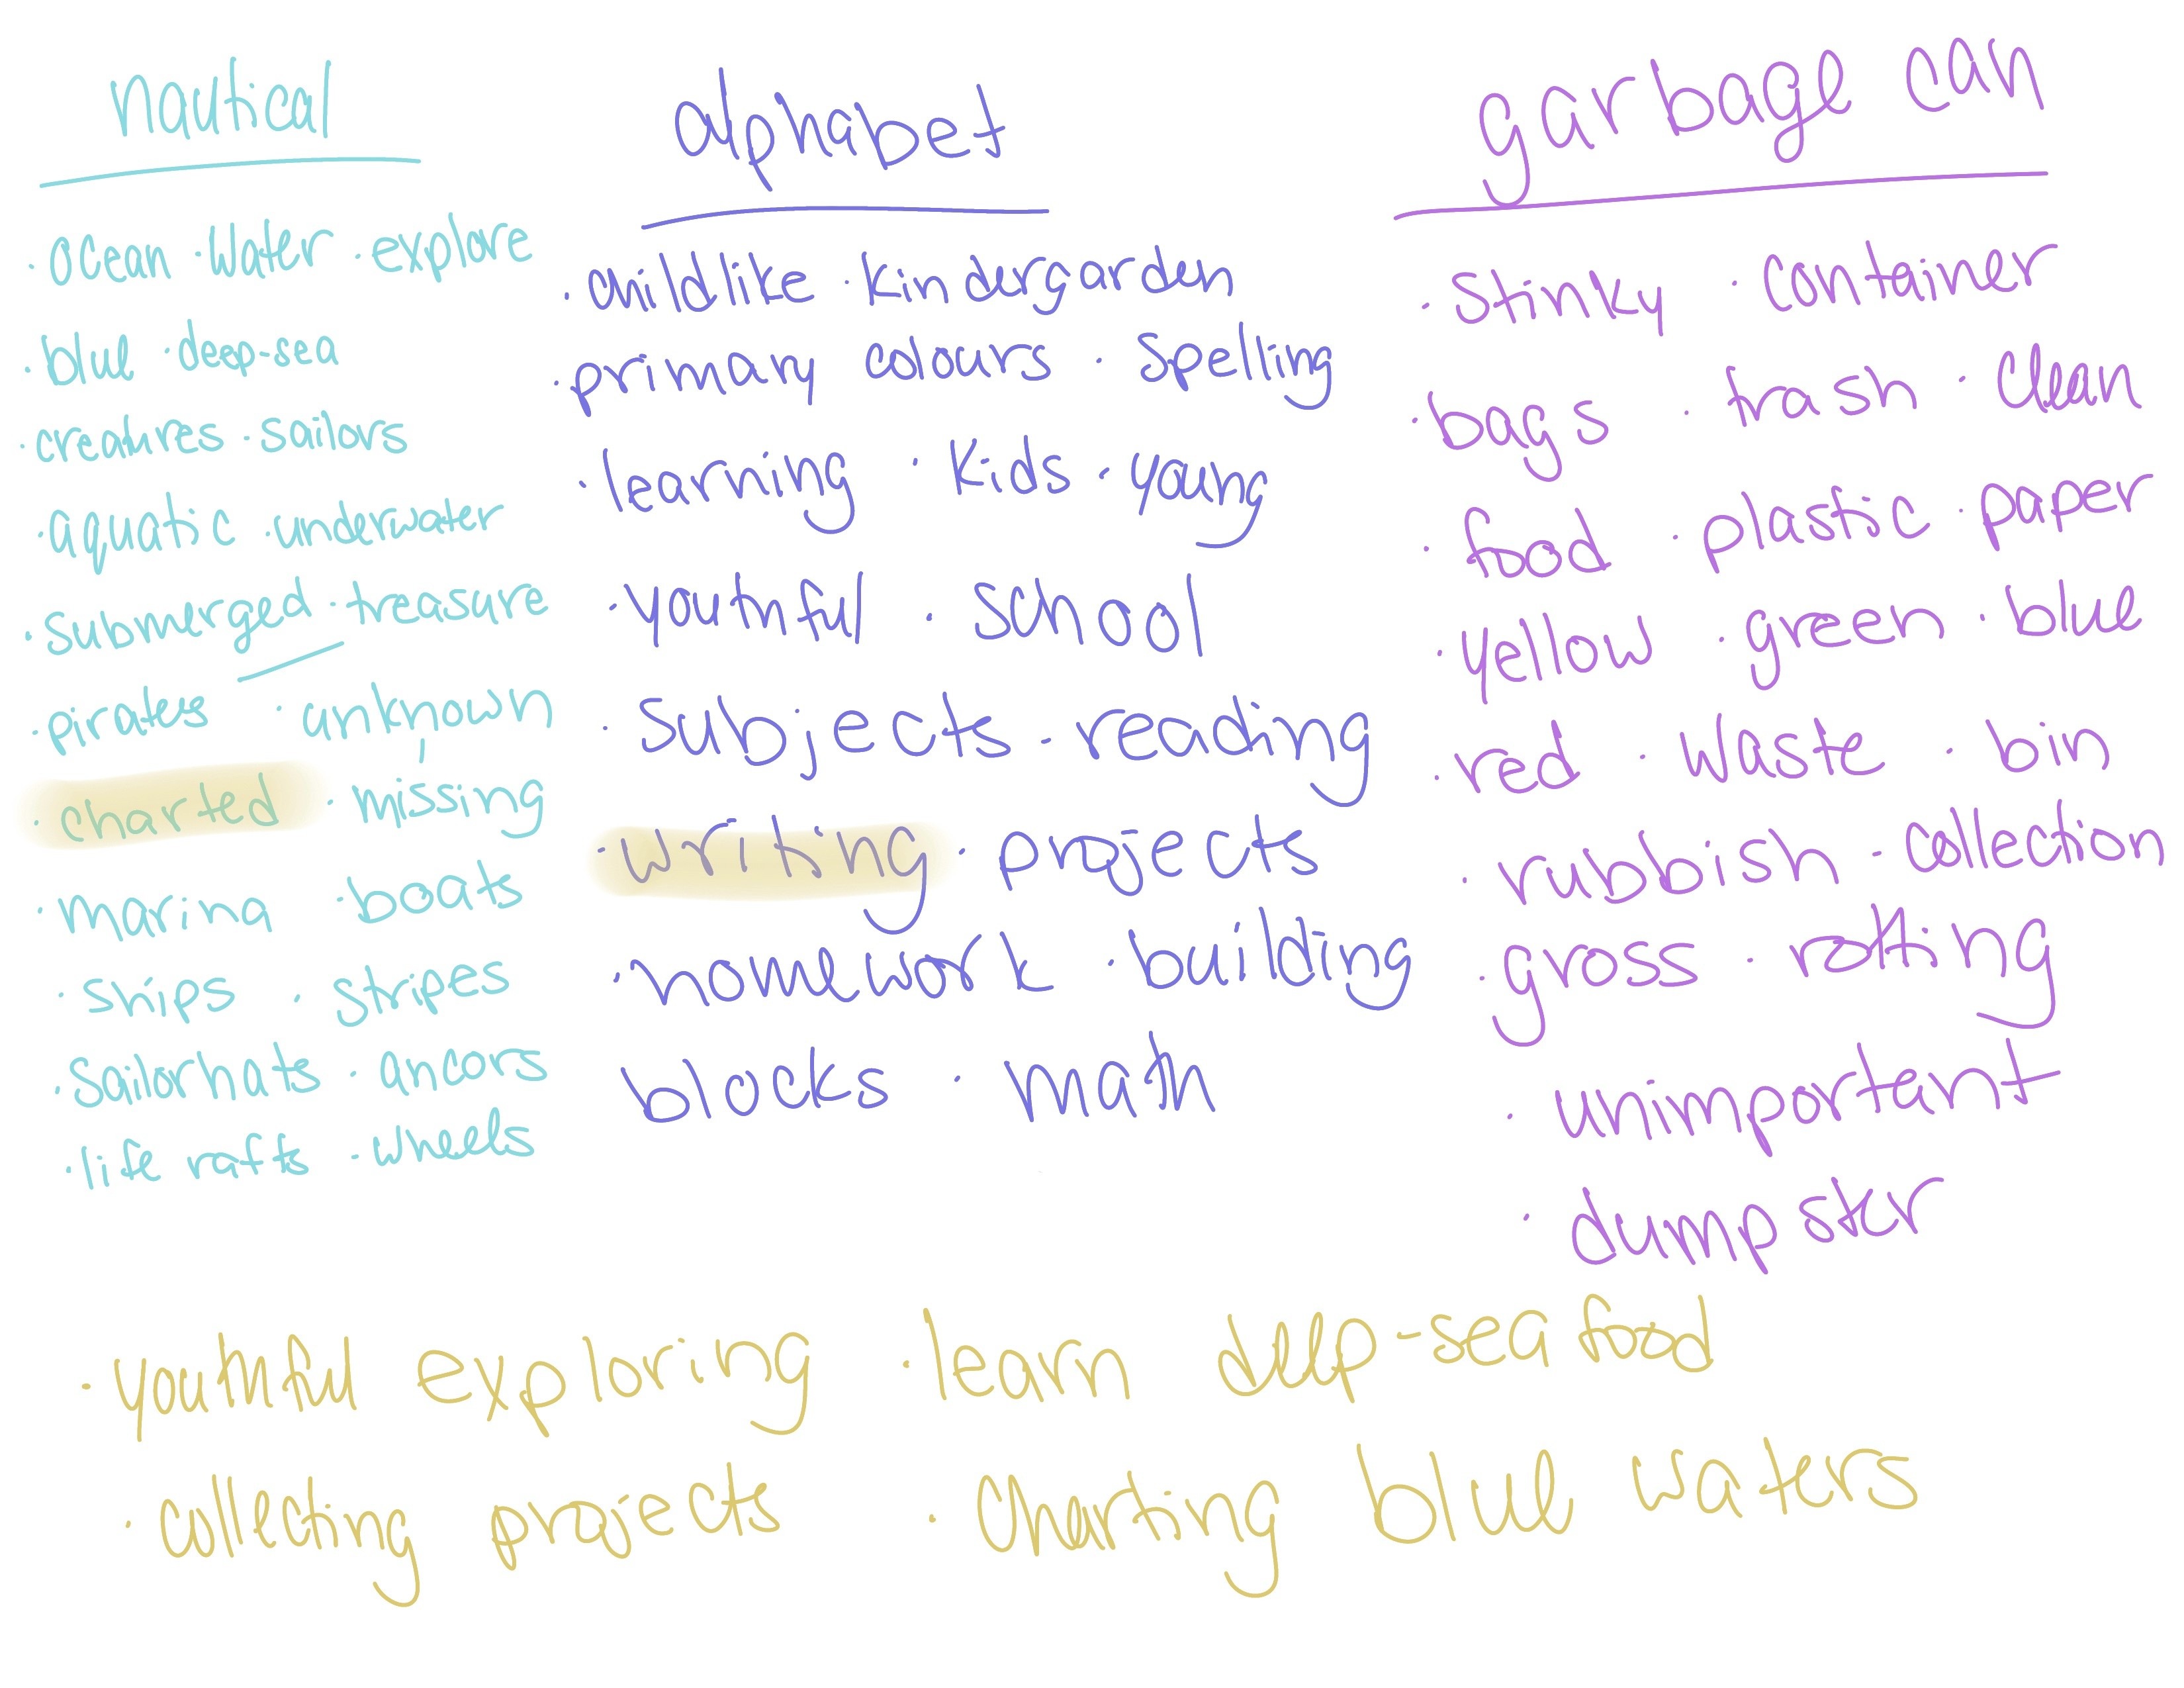 nautical
· ocean · water · explore
· blue · deep-sea
· creatures · sailors
· aquatic · underwater
· submerged · treasure
· pirates · unknown
· charted · missing
· marina · boats
· ships · stripes
· sailorhats · ancors
· life rafts · wheels
alphabet
· childlike · kindergarden
· primary colours · spelling
· learning · kids · young
· youthful · school
· subjects · reading
· writing · projects
· homework · building
blocks · math
garbage can
· stinky · container
· bags · trash · clean
· food · plastic · paper
· yellow · green · blue
· red · waste · bin
· rubbish · collection
· gross · rotting
· unimportant
· dumpster
· youthful exploring · learn deep-sea food
· collecting projects · charting blue waters